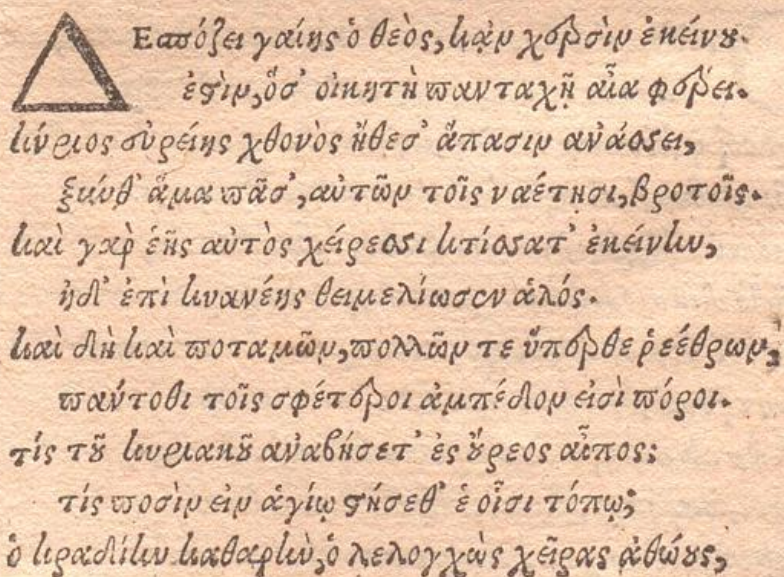 ΔΕσπόζει γαίης ὁ θεὸς, κἀν χερσὶν ἐκείνου.
ἐστὶν, ὅσ' οἰκητὴ πανταχῇ αἶα φέρει.
κύριος εὐρείης χθονὸς ἤθεσ' ἅπασιν ἀνάσσει,
ξυνθ' ἅμα πᾶσ', αὐτῶν τοῖς ναέτησι, βροτοῖς.
καὶ γὰρ ἑῆς αὐτὸς χείρεσσι κτίσσατ' ἐκείνην,
ἠδ' ἐπὶ κυανέης θειμελίωσεν ἁλός.
καὶ δὴ καὶ ποταμῶν, πολλῶν τε ὕπερθε ῥεέθρων,
παντόθι τοῖς σφέτεροι ἀμπέδον εἰσὶ πόροι.
τίς τοῦ κυριακοῦ ἀναβήσετ' ἐς οὔρεος αἶπος;
τίς ποσὶν εἰν ἁγίῳ στήσεθ' ἑ οἷσι τόπῳ;
ὁ κραδίην καθαρὴν, ὁ λελογχὼς χεῖρας ἀθώους,